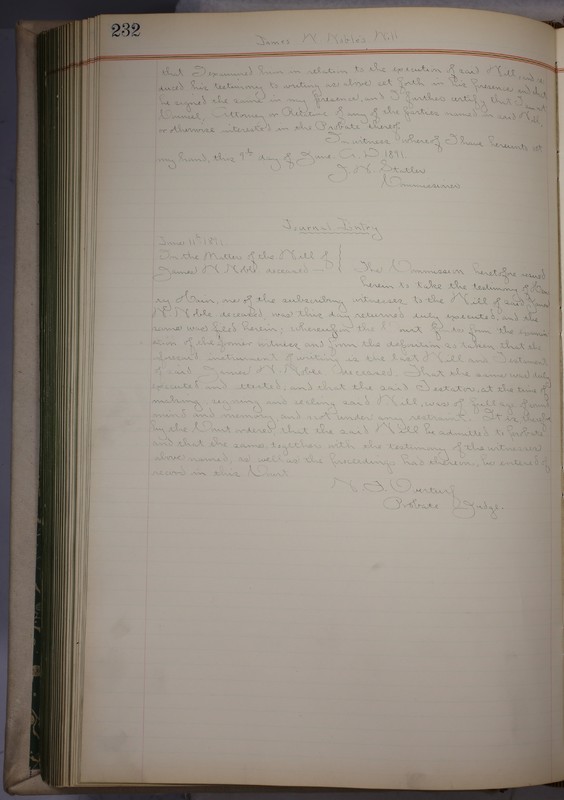 232
James N. Nobles Will
that I examined him in relation to the execution of said Will, and re
duced his testimony to writing as above set forth in his presence and that
he signed the same in my presence, and I further certify that I am not
Counsel, Attorney or Relative of any of the parties named in said Will,
or otherwise interested in the Probate thereof.
In witness whereof I have hereunto set
my hand, this 9th day of June A. D. 1891.
J. N. Statler
Commissioner
Journal Entry
June 11th 1891.
In the Matter of the Will of
James N. Noble deceased
The Commission heretofore issued
herein to take the testimony of
one of the subscribing witnesses to the Will of said James
N. Noble deceased, was this day returned duly executed, and the
same was filed herein; whereupon the Court finds from the
of the former witness and from the deposition so taken, that the
aforesaid instrument of writing is the last Will and Testament
of said James N. Nobles deceased. That the same was duly
executed and attested, and that the said Testator, at the time of
making, signing and sealing said Will, was of full age, of sound
mind and memory and not under any restraint. It is therefore
by the Court ordered that the said Will be admitted to probate
and that the same, together with the testimony of the witnesses
above named, as well as the proceedings had therein, be entered of
record in this Court.
Probate Judge.